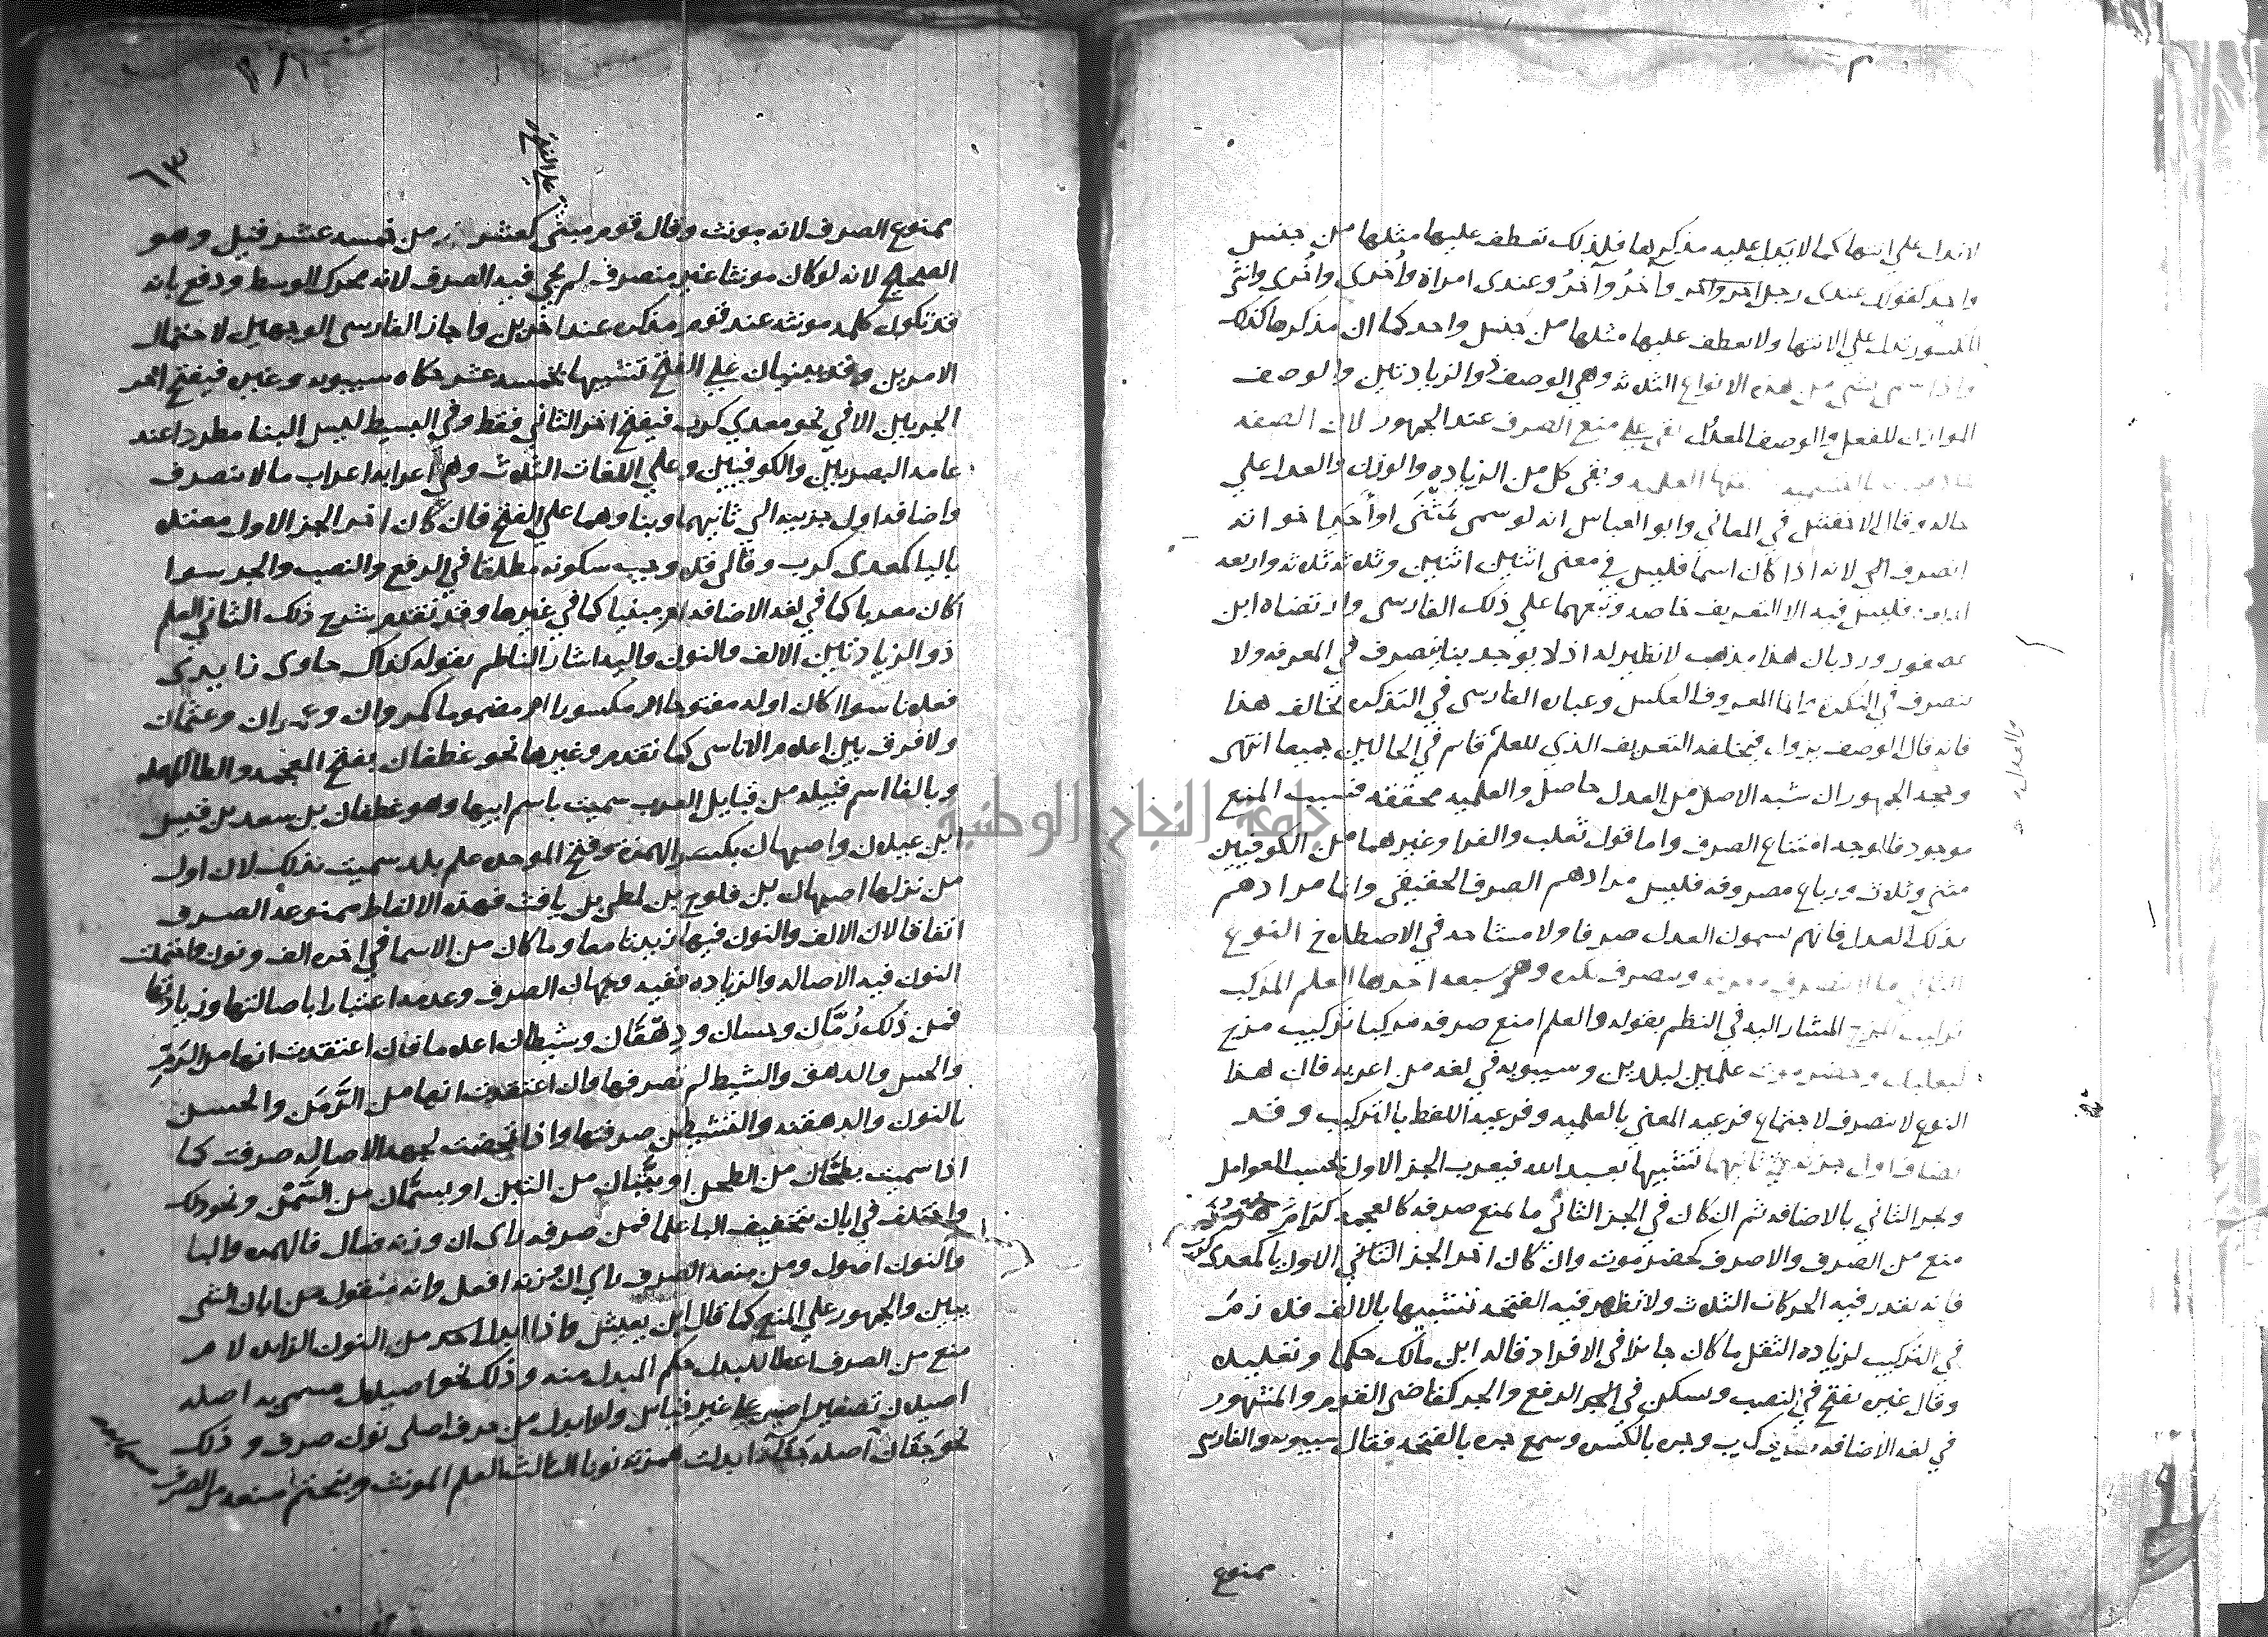 ٣
لا تدل علي انتها كما لا يدل عليه مذكرها فلذلك تعطف عليها مثلها من جنس
واحد كقولك عندي رجل اخر وآخر وآخر وآخر وعندي امراة وأخرى وأخرى وانثى
تدل علي الانتها ولا يعطف عليها مثلها من جنس واحد كما ان مذكرها كذلك
واذا سمي بشي من هذه الانواع الثلاثه وهي الوصف ذو الزيادتين والوصف
الموازن للفعل والوصف المعدول بقي علي منع الصرف عند الجمهور لان الصفه
العلميه وبقي كل من الزياده والوزن والعدل علي
حاله وقال الاخفش في المعاني وابو العباس انه لو سمي بمثنى او أحد اخواته
انصرف الي لانه اذا كان اسما فليس في معني اثنين اثنين وثلاثه ثلاثه واربعه
اربعه فليس فيه الا التعريف خاصه وتبعهما علي ذلك الفارسي وارتضاه ابن
عصفور ورد بان هذا مذهب لا نظير له اذ لا يوجد بنا ينصرف في المعرفه ولا
ينصرف في النكره وانما المعروف العكس وعباره الفارسي في التذكره تخالف هذا
فانه قال الوصف يزول فيخلفه التعريف الذي للعلم قاسم في الحالين جميعا انتهى
وحجه الجمهور ان شبه الاصل من العدل حاصل والعلميه محققه فسبب المنع
موجود فالوجه امتناع الصرف واما قول ثعلب والفرا وغيرهما من الكوفيين
مثني وثلاث ورباع مصروفه فليس مرادهم الصرف الحقيقي وانما مرادهم
بذلك العدل فانهم يسمون العدل صرفا ولا مشاحه في الاصطلاح النوع
الثاني ما لا ينصرف معرفه وينصرف نكره وهي سبعه احدها العلم المركب
تركيب المزج المشار اليه في النظم بقوله والعلم امنع صرفه مركبا تركيب مزج
كبعلبك وحضرموت علمين لبلدين وسيبويه في لغه من اعربه فان هذا
النوع لا ينصرف لاجتماع فرعيه المعني بالعلميه وفرعيه اللفظ بالتركيب وقد
يضاف اول جزئيه الي ثانيهما تشبيها بعبد الله فيعرب الجز الاول بحسب العوامل
ويجر الثاني بالاضافه ثم ان كان في الجز الثاني ما يمنع صرفه كالعجمه كرام هرمز
منع من الصرف والا صرف كحضرموت وان كان اخر الجز الثاني الاول يا كمعدي كرب
فانه يقدر فيه الحركات الثلاث ولا تظهر فيه الفتحه تشبيها بالالف فلازم
في التركيب لزياده الثقل ما كان جايزا في الافراد قاله ابن مالك حكما وتعليلا
وقال غيره يفتح في النصب ويسكن في الجر الرفع والجر كقاضي القوم والمشهور
في لغه الاضافه صرف كرب وجره بالكسر وسمع جره بالفتحه فقال سيبويه والفارسي
ممنوع
والعدل
٦٣
علي الفتح
ممنوع الصرف لانه مونث وقال قوم مبني كعشر من خمسه عشر قيل وهو
الصحيح لانه لو كان مونثا غير منصرف لم يجي فيه الصرف لانه محرك الوسط ودفع بانه
قد تكون كلمه مونثه عند قوم مذكره عند اخرين واجاز الفارسي الوجهين لاحتمال
الامرين وقد يبنيان علي الفتح تشبيها بخمسه عشر حكاه سيبويه وغيره فيفتح اخر
الجزيين الا في نحو معدي كرب فيفتح اخر الثاني فقط وفي البسيط ليس البنا مطردا عند
عامه البصريين والكوفيين وعلي اللغات الثلاث وهي اعرابه اعراب ما لا ينصرف
واضافه اول جزييه الي ثانيهما وبناوهما علي الفتح فان كان اخر الجز الاول معتله
باليا كمعدي كرب وقالي قلا وجب سكونه مطلقا في الرفع والنصب والجر سوا
اكان معربا كما في لغه الاضافه ام مبنيا كما في غيرها وقد تقدم شرح ذلك الثاني العلم
ذو الزيادتين الالف والنون واليه اشار الناظم بقوله كذاك حاوي زايدي
فعلانا سوا اكان اوله مفتوحا ام مكسورا ام مضموما كمروان وعمران وعثمان
ولا فرق بين اعلام الاناسي كما تقدم وغيرها نحو غطفان بفتح المعجمه والطا المهمله
وبالفا اسم قبيله من قبايل العرب سميت باسم ابيها وهو غطفان بن سعد بن قيس
ابن عيلان واصبهان بكسر الهمزه وفتح الموحده علم بلد سميت بذلك لان اول
من نزلها اصبهان بن فلوج بن لمطي بن يافث فهذه الالفاظ ممنوعه الصرف
اتفاقا لان الالف والنون فيها زيدتا معا وما كان من الاسما في اخره الف ونون واحتملت
النون فيه الاصاله والزياده ففيه وجهان الصرف وعدمه اعتبارا باصالتها وزيادتها
فمن ذلك رُمّان وحسان ودِهقَان وشيطان اعلاما فان اعتقدت انها من الرَمّ
والحس والدهق والشيط لم تصرفها وان اعتقدت انها من الرَّمَن والحسن
بالنون والدهقنه والتشيطن صرفتها واذا تمحضت لجهه الاصاله صرفت كما
اذا سميت بطحّان من الطحن او بتَّبان من التبن او بسمَّان من السَّمْن ونحو ذلك
واختلف في ابان بتخفيف البا علما فمن صرفه راى ان وزنه فعال فالهمزه والبا
والنون اصول ومن منعه الصرف راي ان وزنه افعل وانه منقول من ابان الشي
يبين والجمهور علي المنع كما قال ابن يعيش واذا ابدل احد من النون الزايده لام
منع من الصرف اعطا للبدل حكم المبدل منه وذلك نحو اصيلال مسمي به اصله
اصيلان تصغير اصيل علي غير قياس ولو ابدل من حرف اصلي نون صرف وذلك
نحو حنّان اصله حنّاء ابدلت همزته نونا الثالث العلم المونث ويتحتم منعه من الصرف